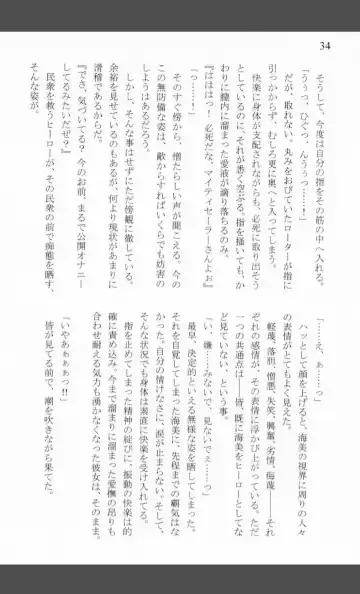 34
そうして、今度は自分の指をその筋の中へ入れる。
「うぅっ、ひぐっ、んうぅっ……！」
だが、取れない。丸みをおびていたローターが指に
引っかからず、むしろ更に奥へと入ってしまう。
快楽に身体が支配されながらも、必死に取り出そう
としているのに、それが悉く空ぶる。指を掻いても、か
わりに膣内に溜まった愛液が滴り落ちるのみ。
『はははっ！ 必死だな、マイティセーラーさんよぉ』
「っ……！」
そのすぐ傍から、憎たらしい声が聞こえる。今の
この無防備な姿は、敵からすればいくらでも妨害の
しようはあるだろう。
しかし、そんな事はせずにただ傍観に徹している。
余裕を見せているのもあるが、何より現状があまりに
滑稽であるからだ。
『でさ、気づいてる？ 今のお前、まるで公開オナニー
してるみたいだぜ？』
民衆を救うヒーローが、その民衆の前で痴態を晒す、
そんな姿が。
「……え、ぁ……っ」
ハッとして顔を上げると、海美の視界に周りの人々
の表情がとてもよく見えた。
軽蔑、落胆、憎悪、失笑、興奮、劣情、侮蔑――それ
ぞれの感情が、その表情に浮かび上がっている。ただ
一つの共通点は――皆、既に海美をヒーローとしてな
ど見ていない、という事。
「い、嫌……みないで、見ないでぇ……っ」
最早、決定的といえる無様な姿を晒してしまった。
それを自覚してしまった海美に、先程までの覇気はな
かった。自分の情けなさに、涙が止まらない。そして、
そんな状況でも身体は素直に快楽を受け入れてる。
指を止めてしまった精神の綻びに、振動の快楽は的
確に責め込み。今まで溜まりに溜まった愛撫の昂りも
合わせ耐える気力も湧かなくなった彼女は、そのまま。
「いやあぁぁぁっ！！」
皆が見てる前で、潮を吹きながら果てた。